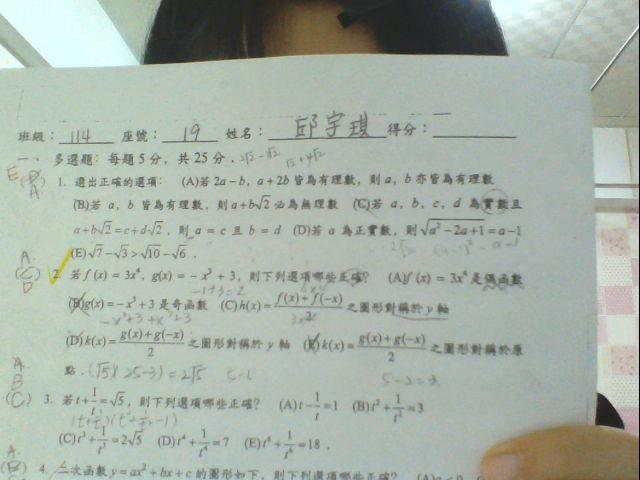 班級：114 座號：19 姓名：邱宇琪 得分：
一、多選題：每題5分，共25分．
E
A
1. 選出正確的選項： (A)若 2a－b，a＋2b 皆為有理數，則 a，b 亦皆為有理數
(B)若 a，b 皆為有理數，則 a+b√2 必為無理數 (C)若 a，b，c，d 為實數且
a+b√2=c+d√2，則 a＝c 且 b＝d (D)若 a 為正實數，則 √(a²−2a+1)=a−1
(E)√7−√3>√10−√6．
A.
(C)
D
2. 若 f(x)=3x⁴，g(x)=－x³＋3，則下列選項哪些正確？ (A)f(x)=3x⁴ 是偶函數
(B)g(x)=－x³+3 是奇函數 (C)h(x)=(f(x)+f(−x))/2 之圖形對稱於 y 軸
(D)k(x)=(g(x)+g(−x))/2 之圖形對稱於 y 軸 (E)k(x)=(g(x)+g(−x))/2 之圖形對稱於原
點．
5-2=3
A.
B
(C)
3. 若 t+1/t=√5，則下列選項哪些正確？ (A)t−1/t=1 (B)t²+1/t²=3
(C)t³+1/t³=2√5 (D)t⁴+1/t⁴=7 (E)t⁶+1/t⁶=18．
A.
4. 二次函數 y=ax²+bx+c 的圖形如下，則下列選項哪些正確？